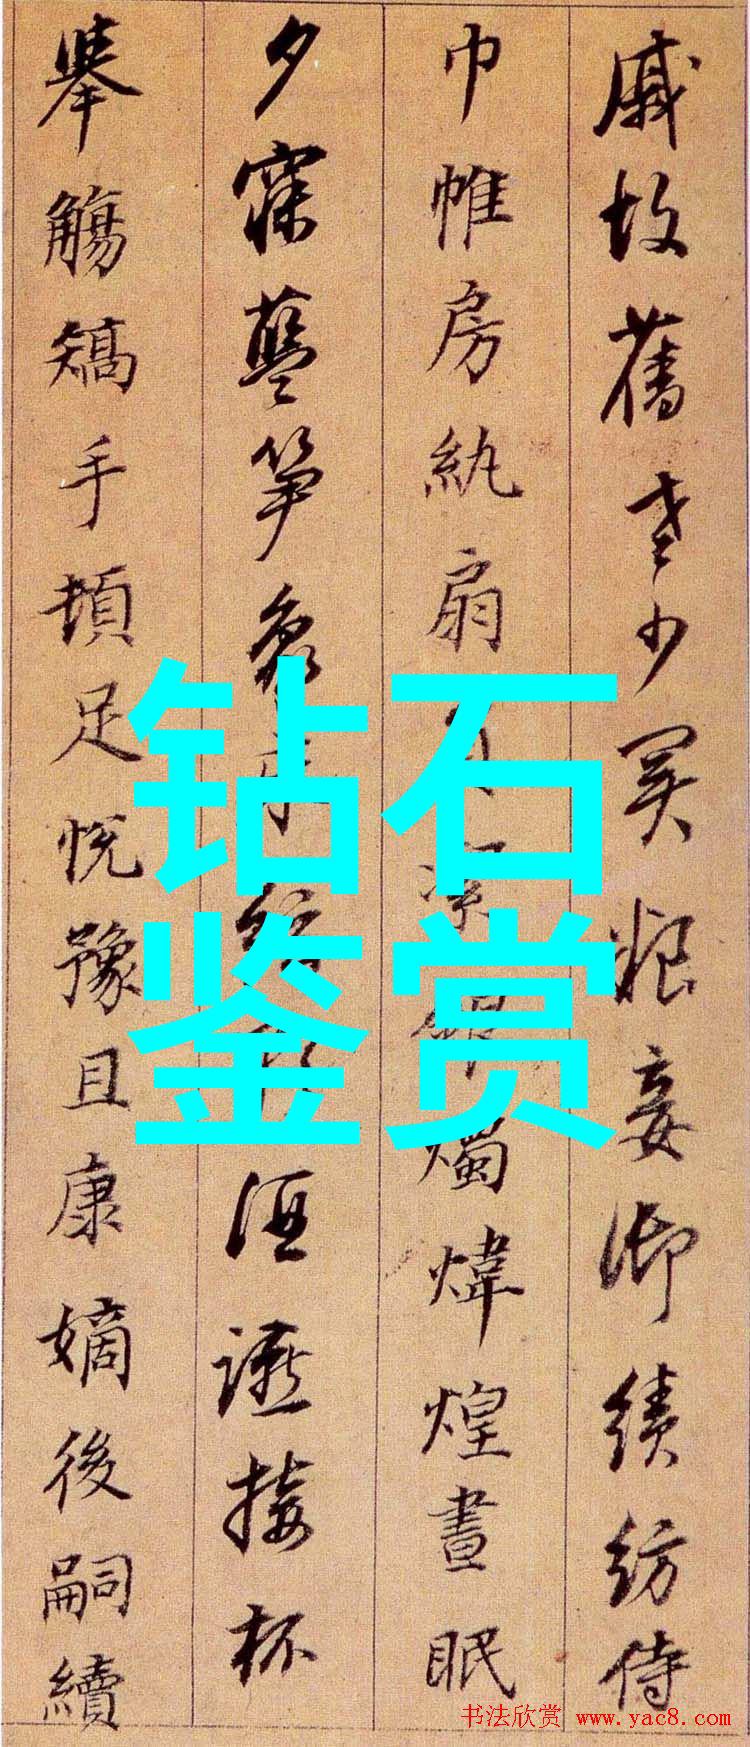 戚故舊老少異粮妾御績紡侍
巾帷房紈扇潔燭煒煌晝眠
夕寐藍笋象床絃酒讌接杯
舉觴矯手頓足悅豫且康嫡後嗣續
钻石
鉴赏
书法欣赏 www.yac8.com